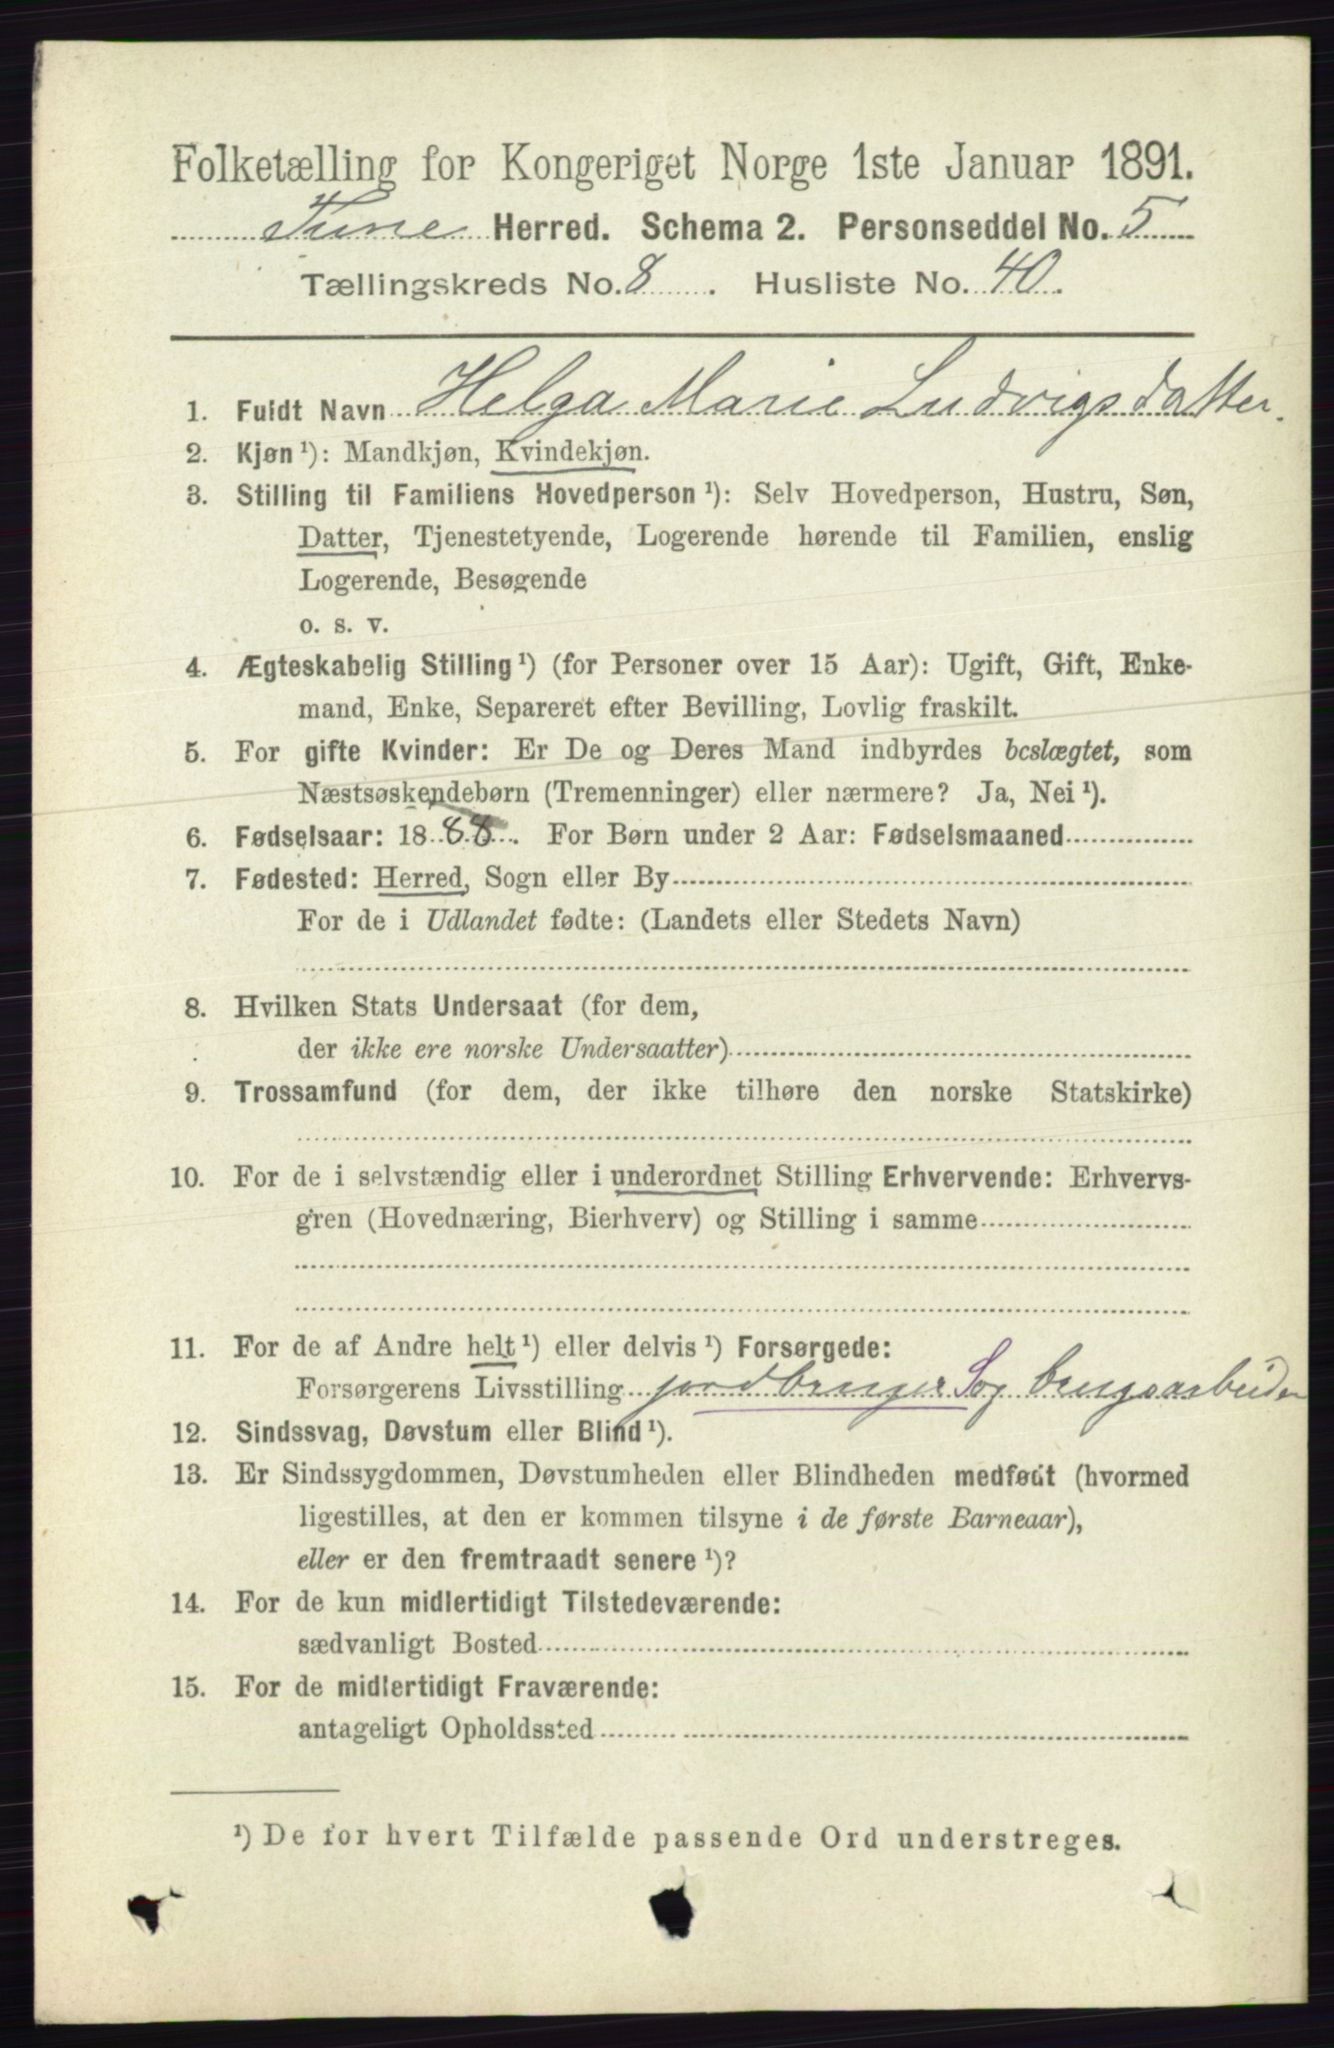 Folketælling for Kongeriget Norge 1ste Januar 1891.
Tune Herred. Schema 2. Personseddel No. 5
Tællingskreds No. 8. Husliste No. 40.
1. Fuldt Navn Helga Marie Ludvigsdatter.
2. Kjøn¹): Mandkjøn, Kvindekjøn.
3. Stilling til Familiens Hovedperson¹): Selv Hovedperson, Hustru, Søn,
Datter, Tjenestetyende, Logerende hørende til Familien, enslig
Logerende, Besøgende
o. s. v.
4. Ægteskabelig Stilling¹) (for Personer over 15 Aar): Ugift, Gift, Enke-
mand, Enke, Separeret efter Bevilling, Lovlig fraskilt.
5. For gifte Kvinder: Er De og Deres Mand indbyrdes beslægtet, som
Næstsøskendebørn (Tremenninger) eller nærmere? Ja, Nei¹).
6. Fødselsaar: 1888. For Børn under 2 Aar: Fødselsmaaned
7. Fødested: Herred, Sogn eller By
For de i Udlandet fødte: (Landets eller Stedets Navn)
8. Hvilken Stats Undersaat (for dem,
der ikke ere norske Undersaatter)
9. Trossamfund (for dem, der ikke tilhøre den norske Statskirke)
10. For de i selvstændig eller i underordnet Stilling Erhvervende: Erhvervs-
gren (Hovednæring, Bierhverv) og Stilling i samme
11. For de af Andre helt¹) eller delvis¹) Forsørgede:
Forsørgerens Livsstilling jordbruger S og brugsarbeider
12. Sindssvag, Døvstum eller Blind¹).
13. Er Sindssygdommen, Døvstumheden eller Blindheden medfødt (hvormed
ligestilles, at den er kommen tilsyne i de første Barneaar),
eller er den fremtraadt senere¹)?
14. For de kun midlertidigt Tilstedeværende:
sædvanligt Bosted
15. For de midlertidigt Fraværende:
antageligt Opholdssted
¹) De for hvert Tilfælde passende Ord understreges.